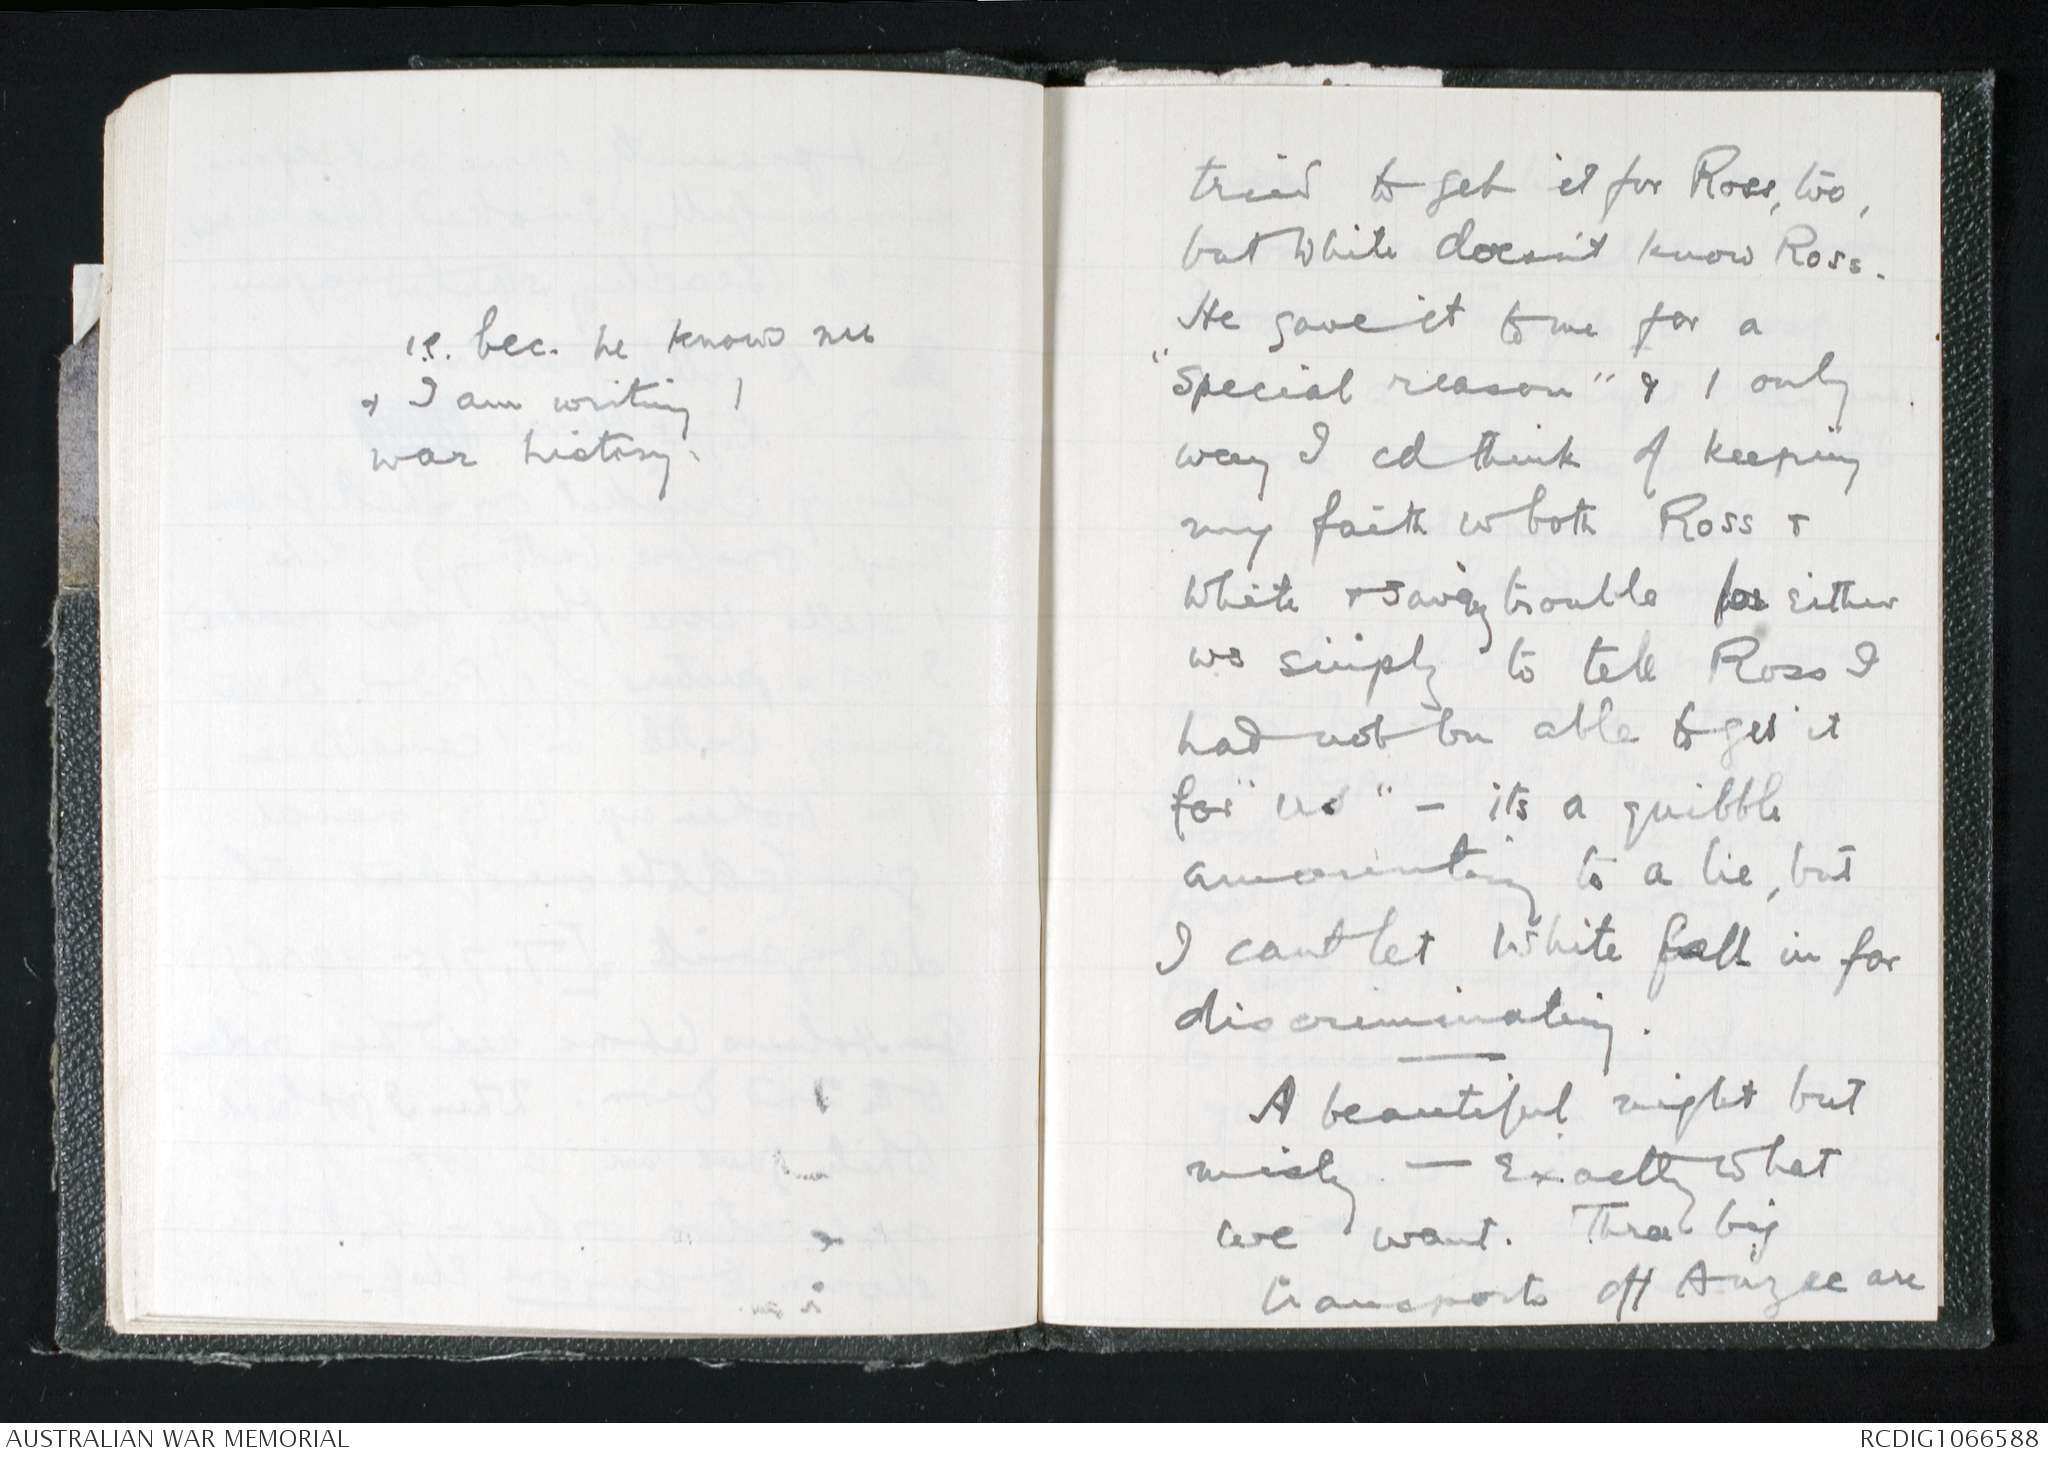 i.e. bec. he knows me
& I am writing /
war history.
tried to get it for Ross, too,
but White doesn't know Ross.
He gave it to me for a
"special reason" & / only
way I cd think of keeping
my faith w both Ross &
White & saving trouble for either
ws simply to tell Ross I
had not bn able to get it
for "us" – its a quibble
amounting to a lie, but
I cant let White fall in for
discriminating.
A beautiful night but
misty. – Exactly what
we want. Three big
transports off Anzac are
AUSTRALIAN WAR MEMORIAL
RCDIG1066588